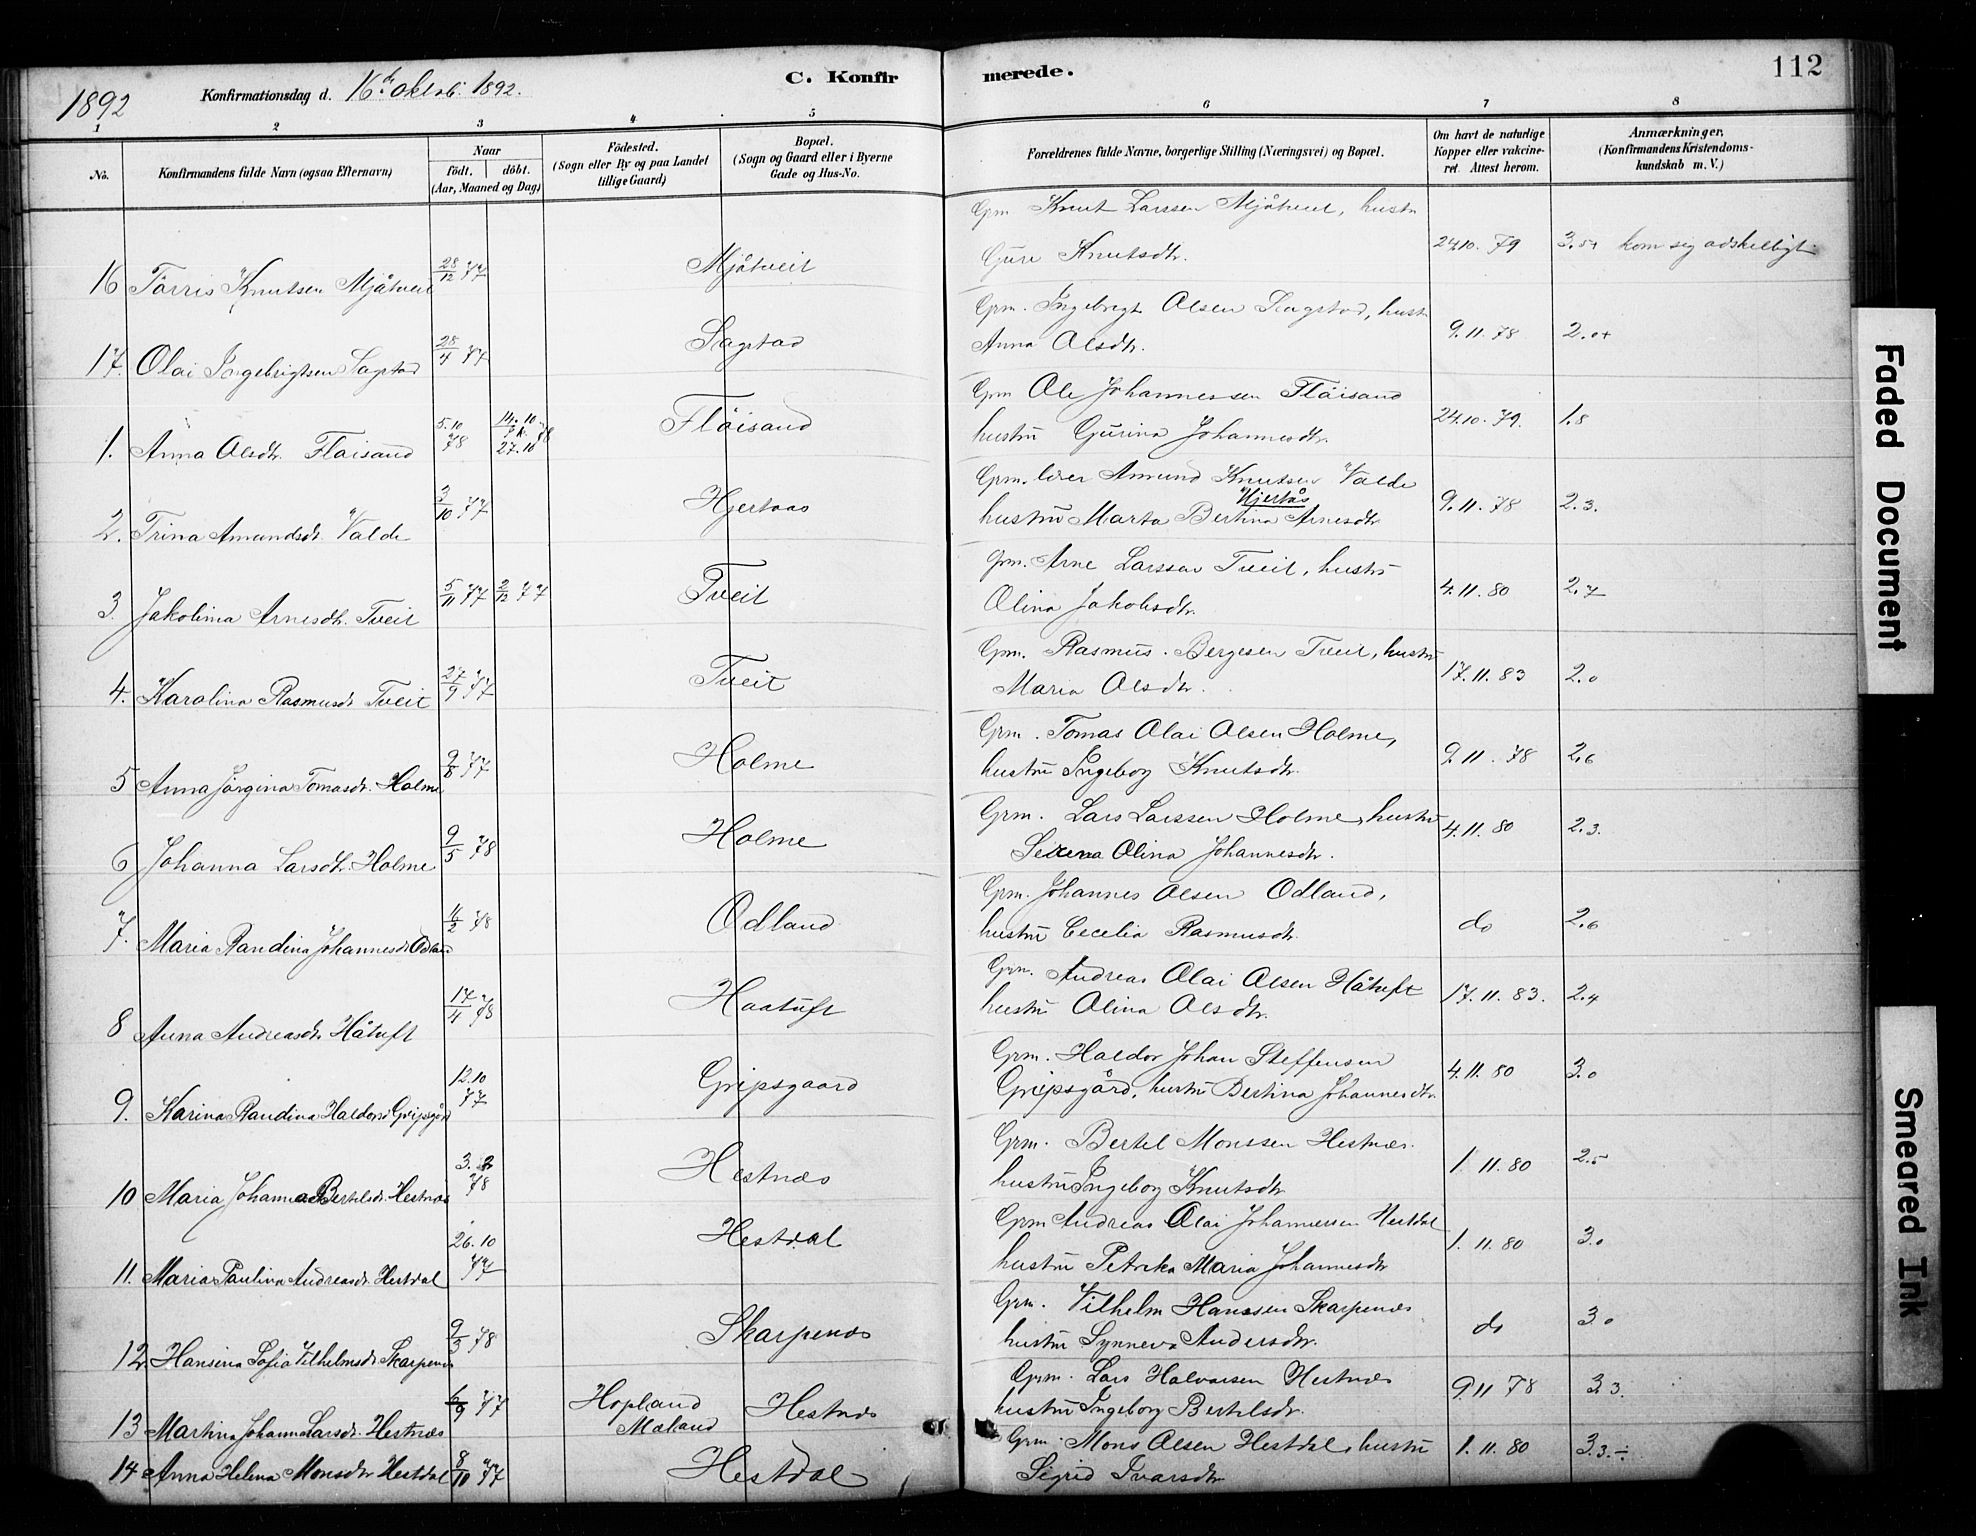 112
1892 Konfirmationsdag d. 16de Oktob. 1892. C. Konfir merede.
1 2 3 4 5 6 7 8
No. Konfirmandens fulde Navn (ogsaa Efternavn) Naar født. døbt. (Aar, Maaned og Dag) Födested. (Sogn eller By og paa Landet tillige Gaard) Bopæl. (Sogn og Gaard eller i Byerne Gade og Hus-No. Forældrenes fulde Navne, borgerlige Stilling (Næringsvei) og Bopæl. Om havt de naturlige Kopper eller vakcineret. Attest herom. Anmærkninger, (Konfirmandens Kristendomskundskab m. V.)
Grm Knut Larssen Mjåtveit, hustr
16 Tørris Knutsen Mjåtveit 28/12 77 Mjåtveit Guri Knutsdtr. 24.10. 79 3.5+ kom sig adskelligt
Grm. Ingebrigt Olsen Sagstad, hustr
17. Olai Ingebrigtsen Sagstad 28/4 77 Sagstad Anna Olsdtr. 9.11. 78 2.0+
Grm Ole Johannessen Fløisand
1. Anna Olsdtr. Fløisand 5.10 78 14.10 78 27.10 Fløisand hustru Gurina Johannesdtr. 24.10. 79. 1.8
Grm. Amund Knutsen Valde
2. Trina Amundsdtr. Valde 3/10 77 Hjertaas hustru Marta Bertina Arnesdtr Hjertås 9.11. 78 2.3.
Grm. Arne Larssen Tveit, hustru
3. Jakolina Arnesdtr. Tveit 5/11 77 2/12 77 Tveit Olina Jakobsdtr. 4.11. 80 2.7
Grm. Rasmus Bergesen Tveit, hustru
4. Karolina Rasmusdtr Tveit 27/9 77 Tveit Maria Olsdtr. 17.11. 83 2.0
Grm. Tomas Olai Olsen Holme,
5 Anna Jørgina Tomasdtr. Holme 9/8 77 Holme hustru Ingeborg Knutsdtr. 9.11. 78 2.6
Grm. Lars Larssen Holme, hustru
6 Johanna Larsdtr. Holme 9/5 78 Holme Olina Johannesdtr. 4.11. 80 2.3.
Grm. Johannes Olsen Odland,
7. Maria Randina Johannesdtr Odland 11/2 78 Odland hustru Cecelia Rasmusdtr. do 2.6
Grm. Andreas Olai Olsen Håtuft
8 Anna Andreasdtr. Håtuft 17/4 78 Haatuft hustru Olina Olsdtr. 17.11. 83. 2.4
Grm. Haldor Johan Steffensen
9. Karina Randina Haldorsd Gripsgård 12.10 77 Gripsgaard Gripsgård, hustru Bertina Johannesdtr. 4.11. 80 3.0
Grm. Bertel Monssen Hestnæs
10 Maria Johanna Bertelsdtr. Hestnæs 3.2 78 Hestnæs hustru Ingeborg Knutsdtr 1.11. 80 2.5
Grm Andreas Olai Johannessen Hestdal
11. Maria Paulina Andreasdtr. Hestdal 26.10 77 Hestdal hustru Petrika Maria Johannesdtr 1.11. 80 3.0
Grm. Vilhelm Hanssen Skarpenæs
12. Hansina Sofia Vilhelmsdtr Skarpenæs 9/3 78 Skarpenæs hustru Synneva Andersdtr. do 3.0
Grm. Lars Halvorsen Hestnæs
13 Martina Johanna Larsdtr. Hestnæs 6/9 77 Hopland Mæland Hestnæs hustru Ingeborg Bertelsdtr. 9.11 78 3.3.
Grm. Mons Olsen Hestdal, hustru
14 Anna Helena Monsdtr Hestdal 8/10 77 Hestdal Sigrid Ivarsdtr 1.11. 80 3.3.÷
Faded Document
Smeared Ink